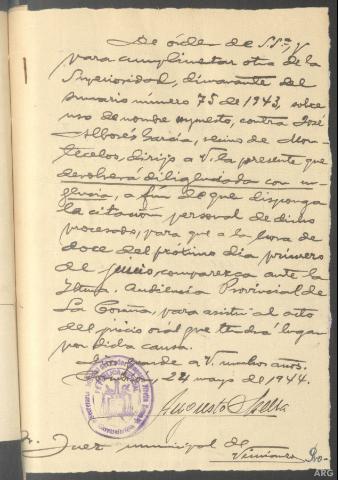 De órden de SSª. y
para cumplimentar otra de la
Superioridad, dimanante del
sumario número 75 de 1943, sobre
uso de nombre supuesto, contra José
Alborés García, vecino de Mon-
tecelos, dirijo a V. la presente que
devolverá diligenciada con ur-
gencia, a fin de que disponga
la citación personal de dicho
procesado, para que a la hora de
doce del próximo día primero
de junio, comparezca ante la
Iltma. Audiencia Provincial de
La Coruña, para asistir al acto
del juicio oral que tendrá lugar
por dicha causa.
Dios guarde a V. muchos años.
24 mayo de 1944.
Augusto
Sr. Juez municipal de
ARG